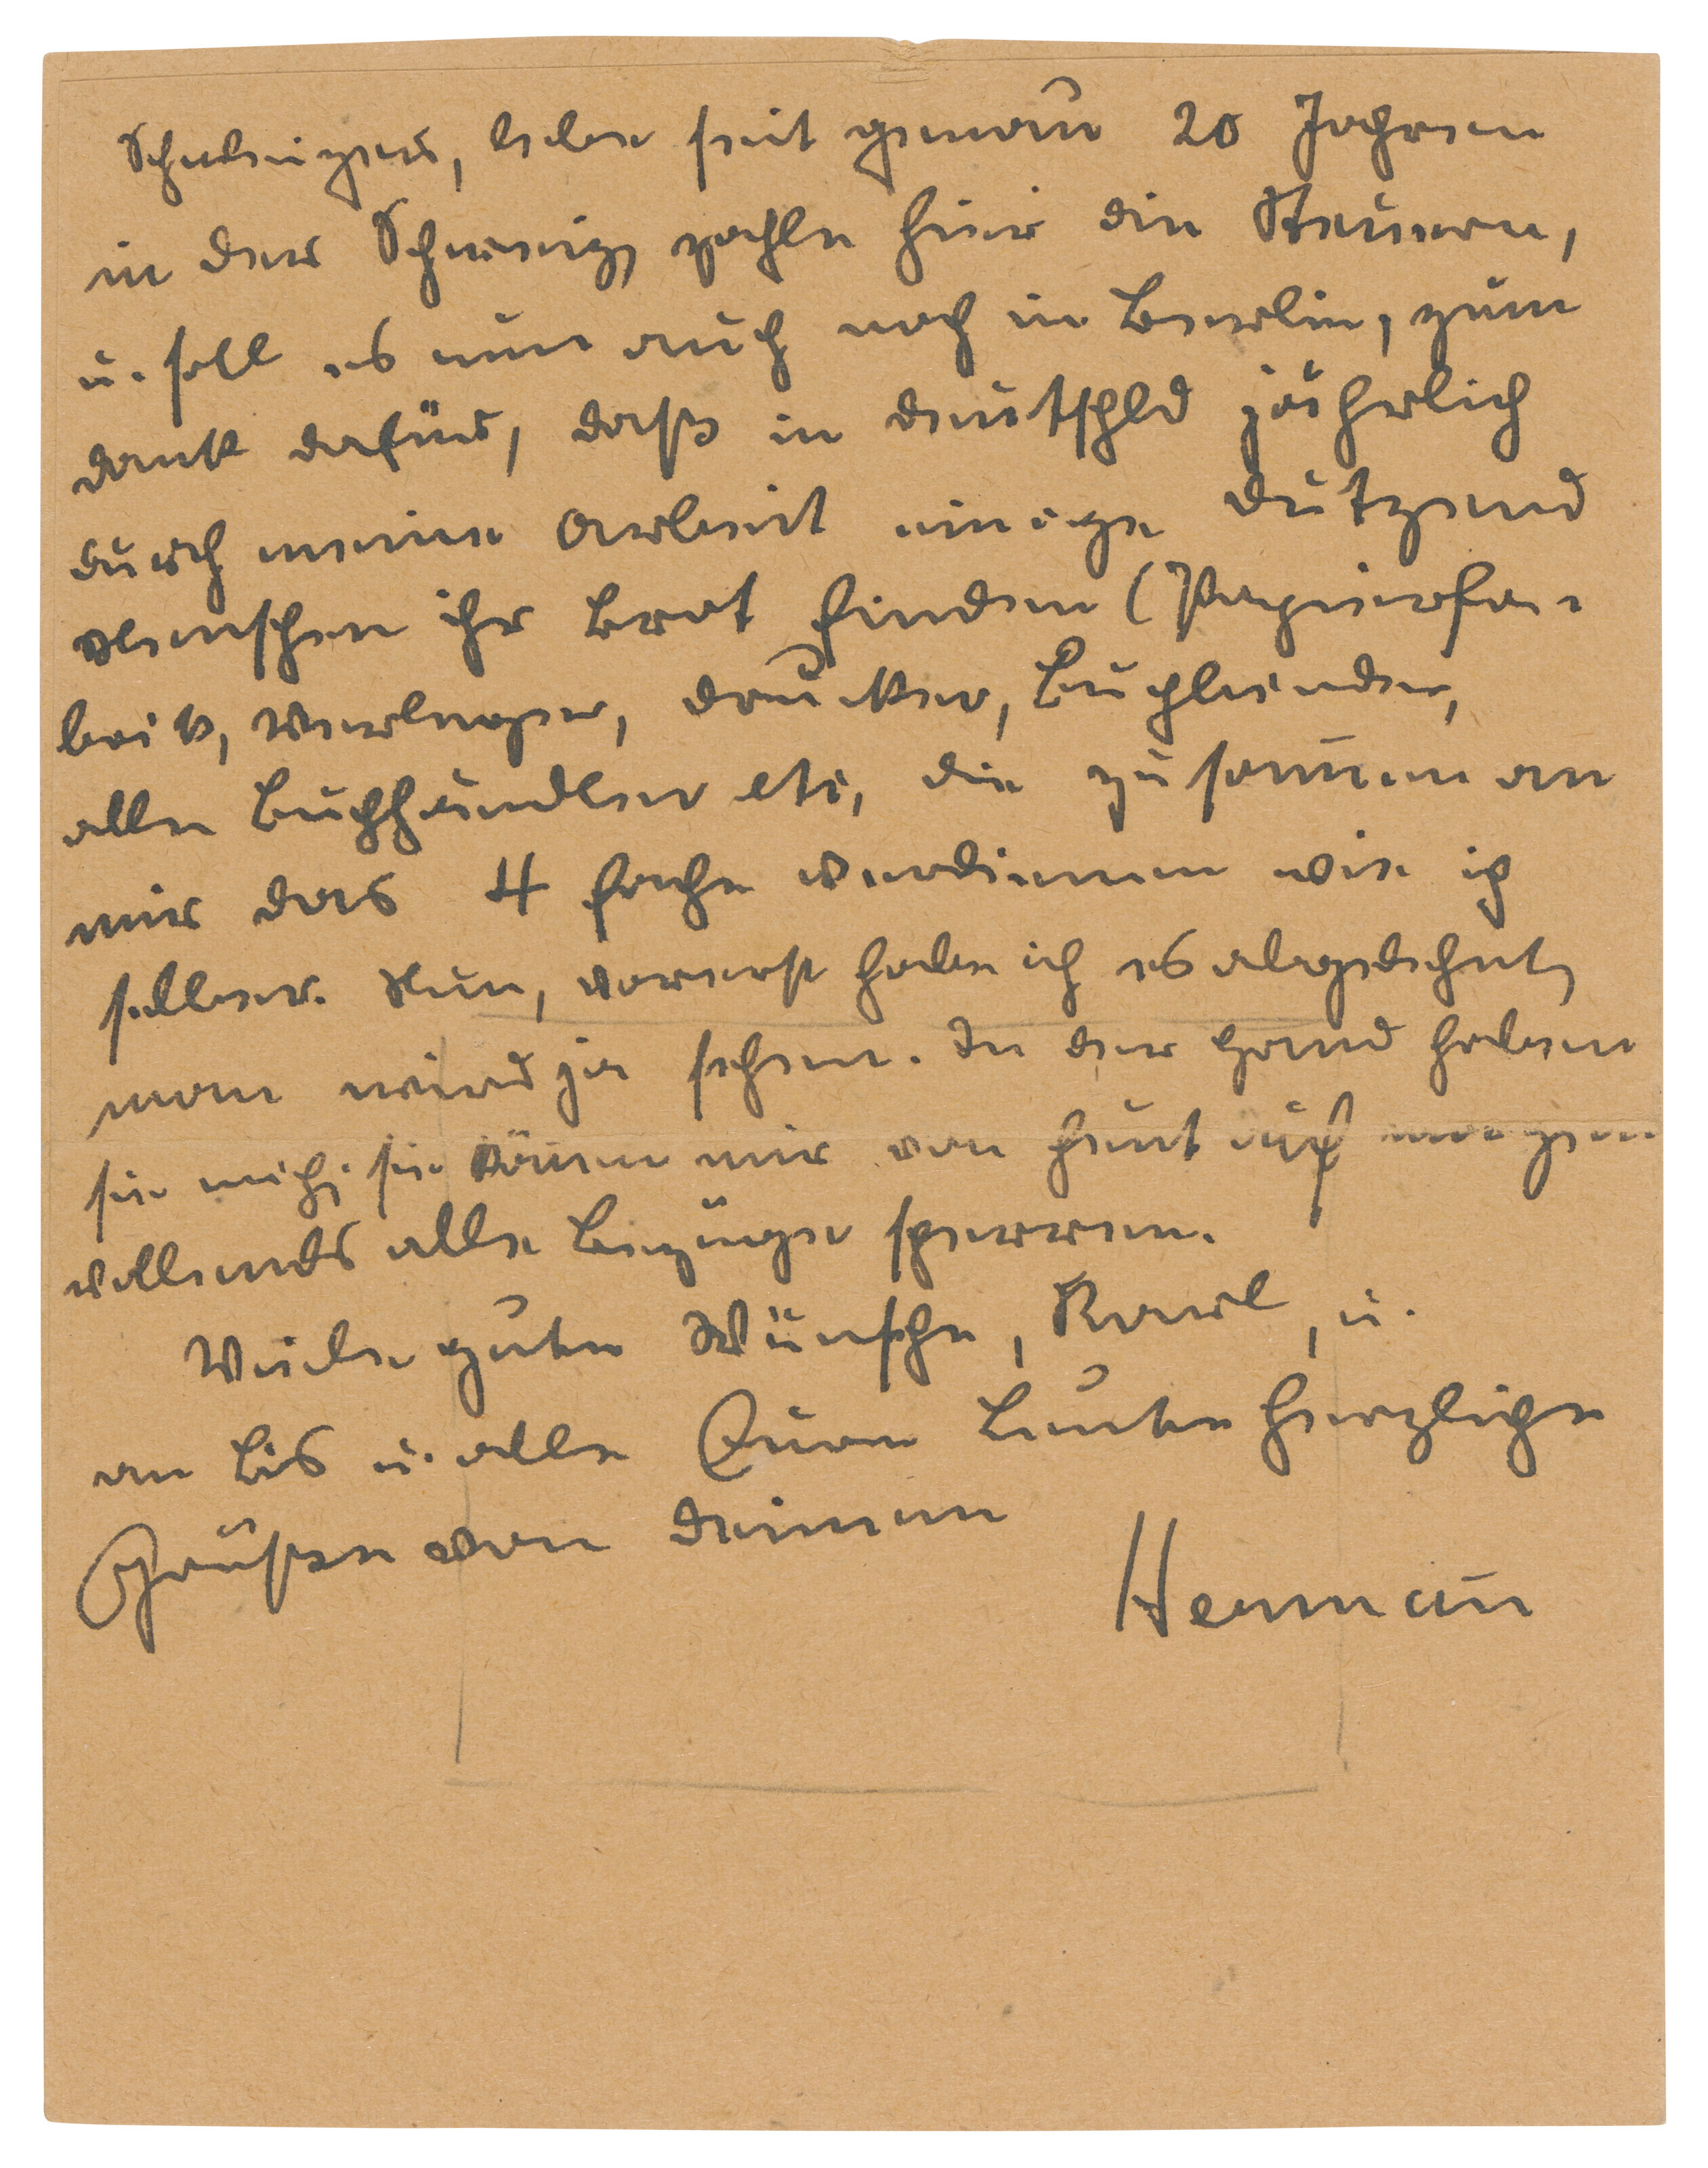 Schweizer, lebe seit genau 20 Jahren
in der Schweiz, zahle hier die Steuern,
u. soll es nun auch noch in Berlin, zum
Dank dafür, daß in Deutschld jährlich
durch meine Arbeit einige Dutzend
Menschen ihr Brot finden (Papierfa-
brik, Verleger, Drucker, Buchbinder,
alle Buchhändler etc, die zusam̄en an
mir das 4 fache verdienen wie ich
selber. Nun, vorerst habe ich es abgelehnt,
man wird ja sehen. In der Hand haben
sie mich; sie kön̄en mir von heut auf morgen
vollends alle Bezüge sperren.
Viele gute Wünsche, Karl, u.
an Lis u. alle Eure Leute herzliche
Grüße von Deinem
Herman̄